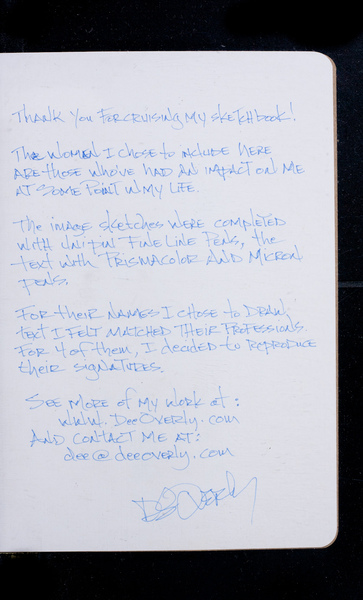 Thank you for cruising my sketchbook!
The women I chose to include here
are those who've had an impact on me
at some point in my life.
The image sketches were completed
with Uni pin Fine Line Pens, the
text with Prismacolor and Micron
pens.
For their names I chose to draw
text I felt matched their professions.
For 4 of them, I decided to reproduce
their signatures.
See more of my work at:
www.DeeOverly.com
And contact me at:
dee@deeoverly.com
Dee Overly